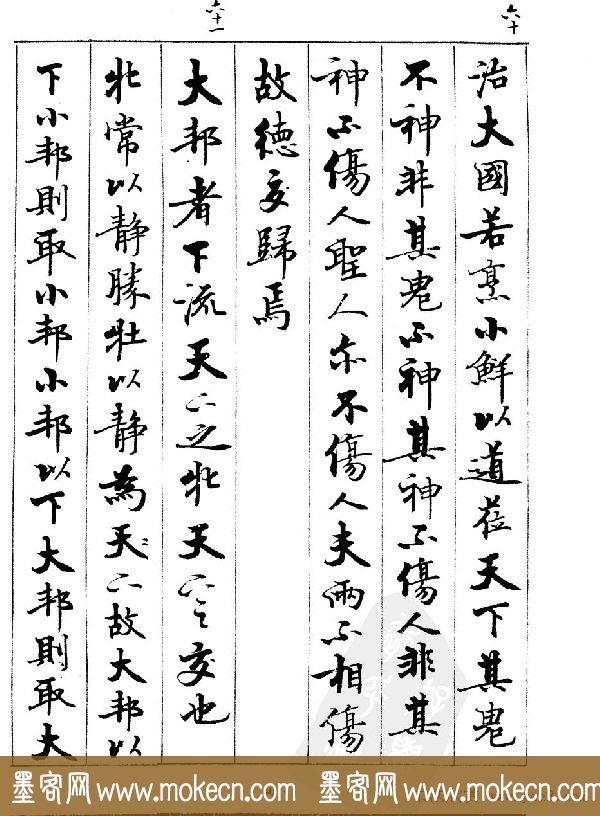 六十
治大國若烹小鮮以道莅天下其鬼
不神非其鬼不神其神不傷人非其
神不傷人聖人亦不傷人夫兩不相傷
故德交歸焉
六十一
大邦者下流天下之牝天下之交也
牝常以静勝牡以静為天下故大邦以
下小邦則取小邦小邦以下大邦則取大
墨客网 www.mokecn.com 墨客网 www.mokecn.com